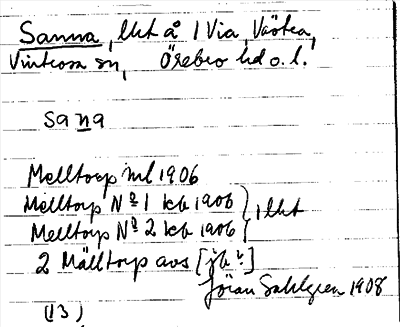 Sanna, lht å 1 Via, Västra,
Vintrosa sn, Örebro hd o. l.
sana
Melltorp ml 1906
Melltorp No 1 kb 1906 } lht
Melltorp No 2 kb 1906
2 Mälltorp avs [jb?]
Jöran Sahlgren 1908
(13)